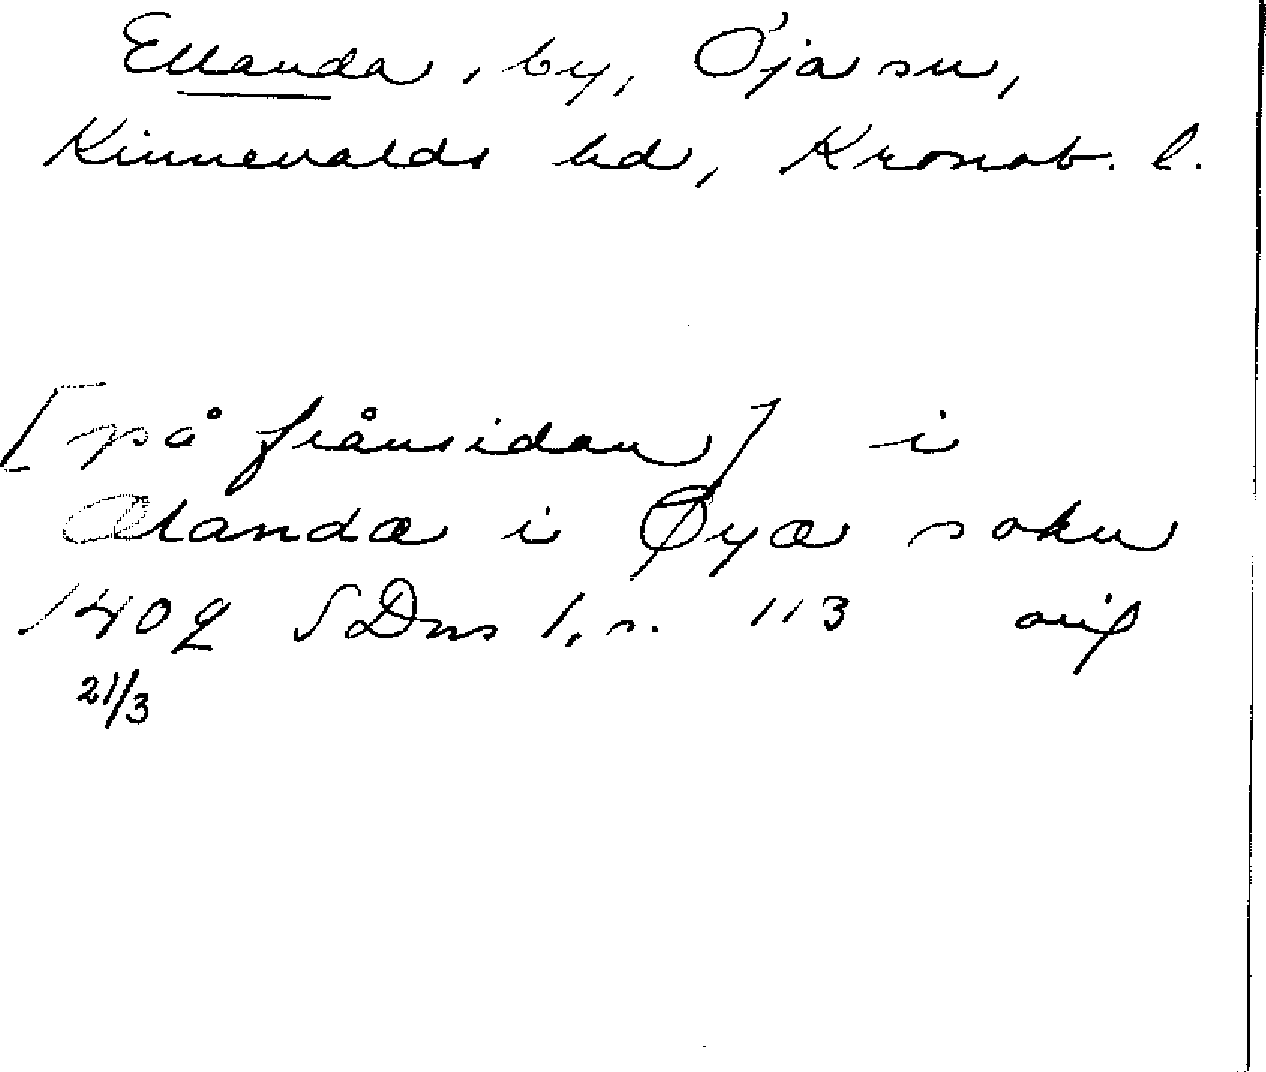 Ellanda, by, Öja sn,
Kinnevalds hd, Kronob. l.
[på frånsidan] i
Ælandæ i Øyæ sokn
1409 SDns 1, s. 113 orig
21/3